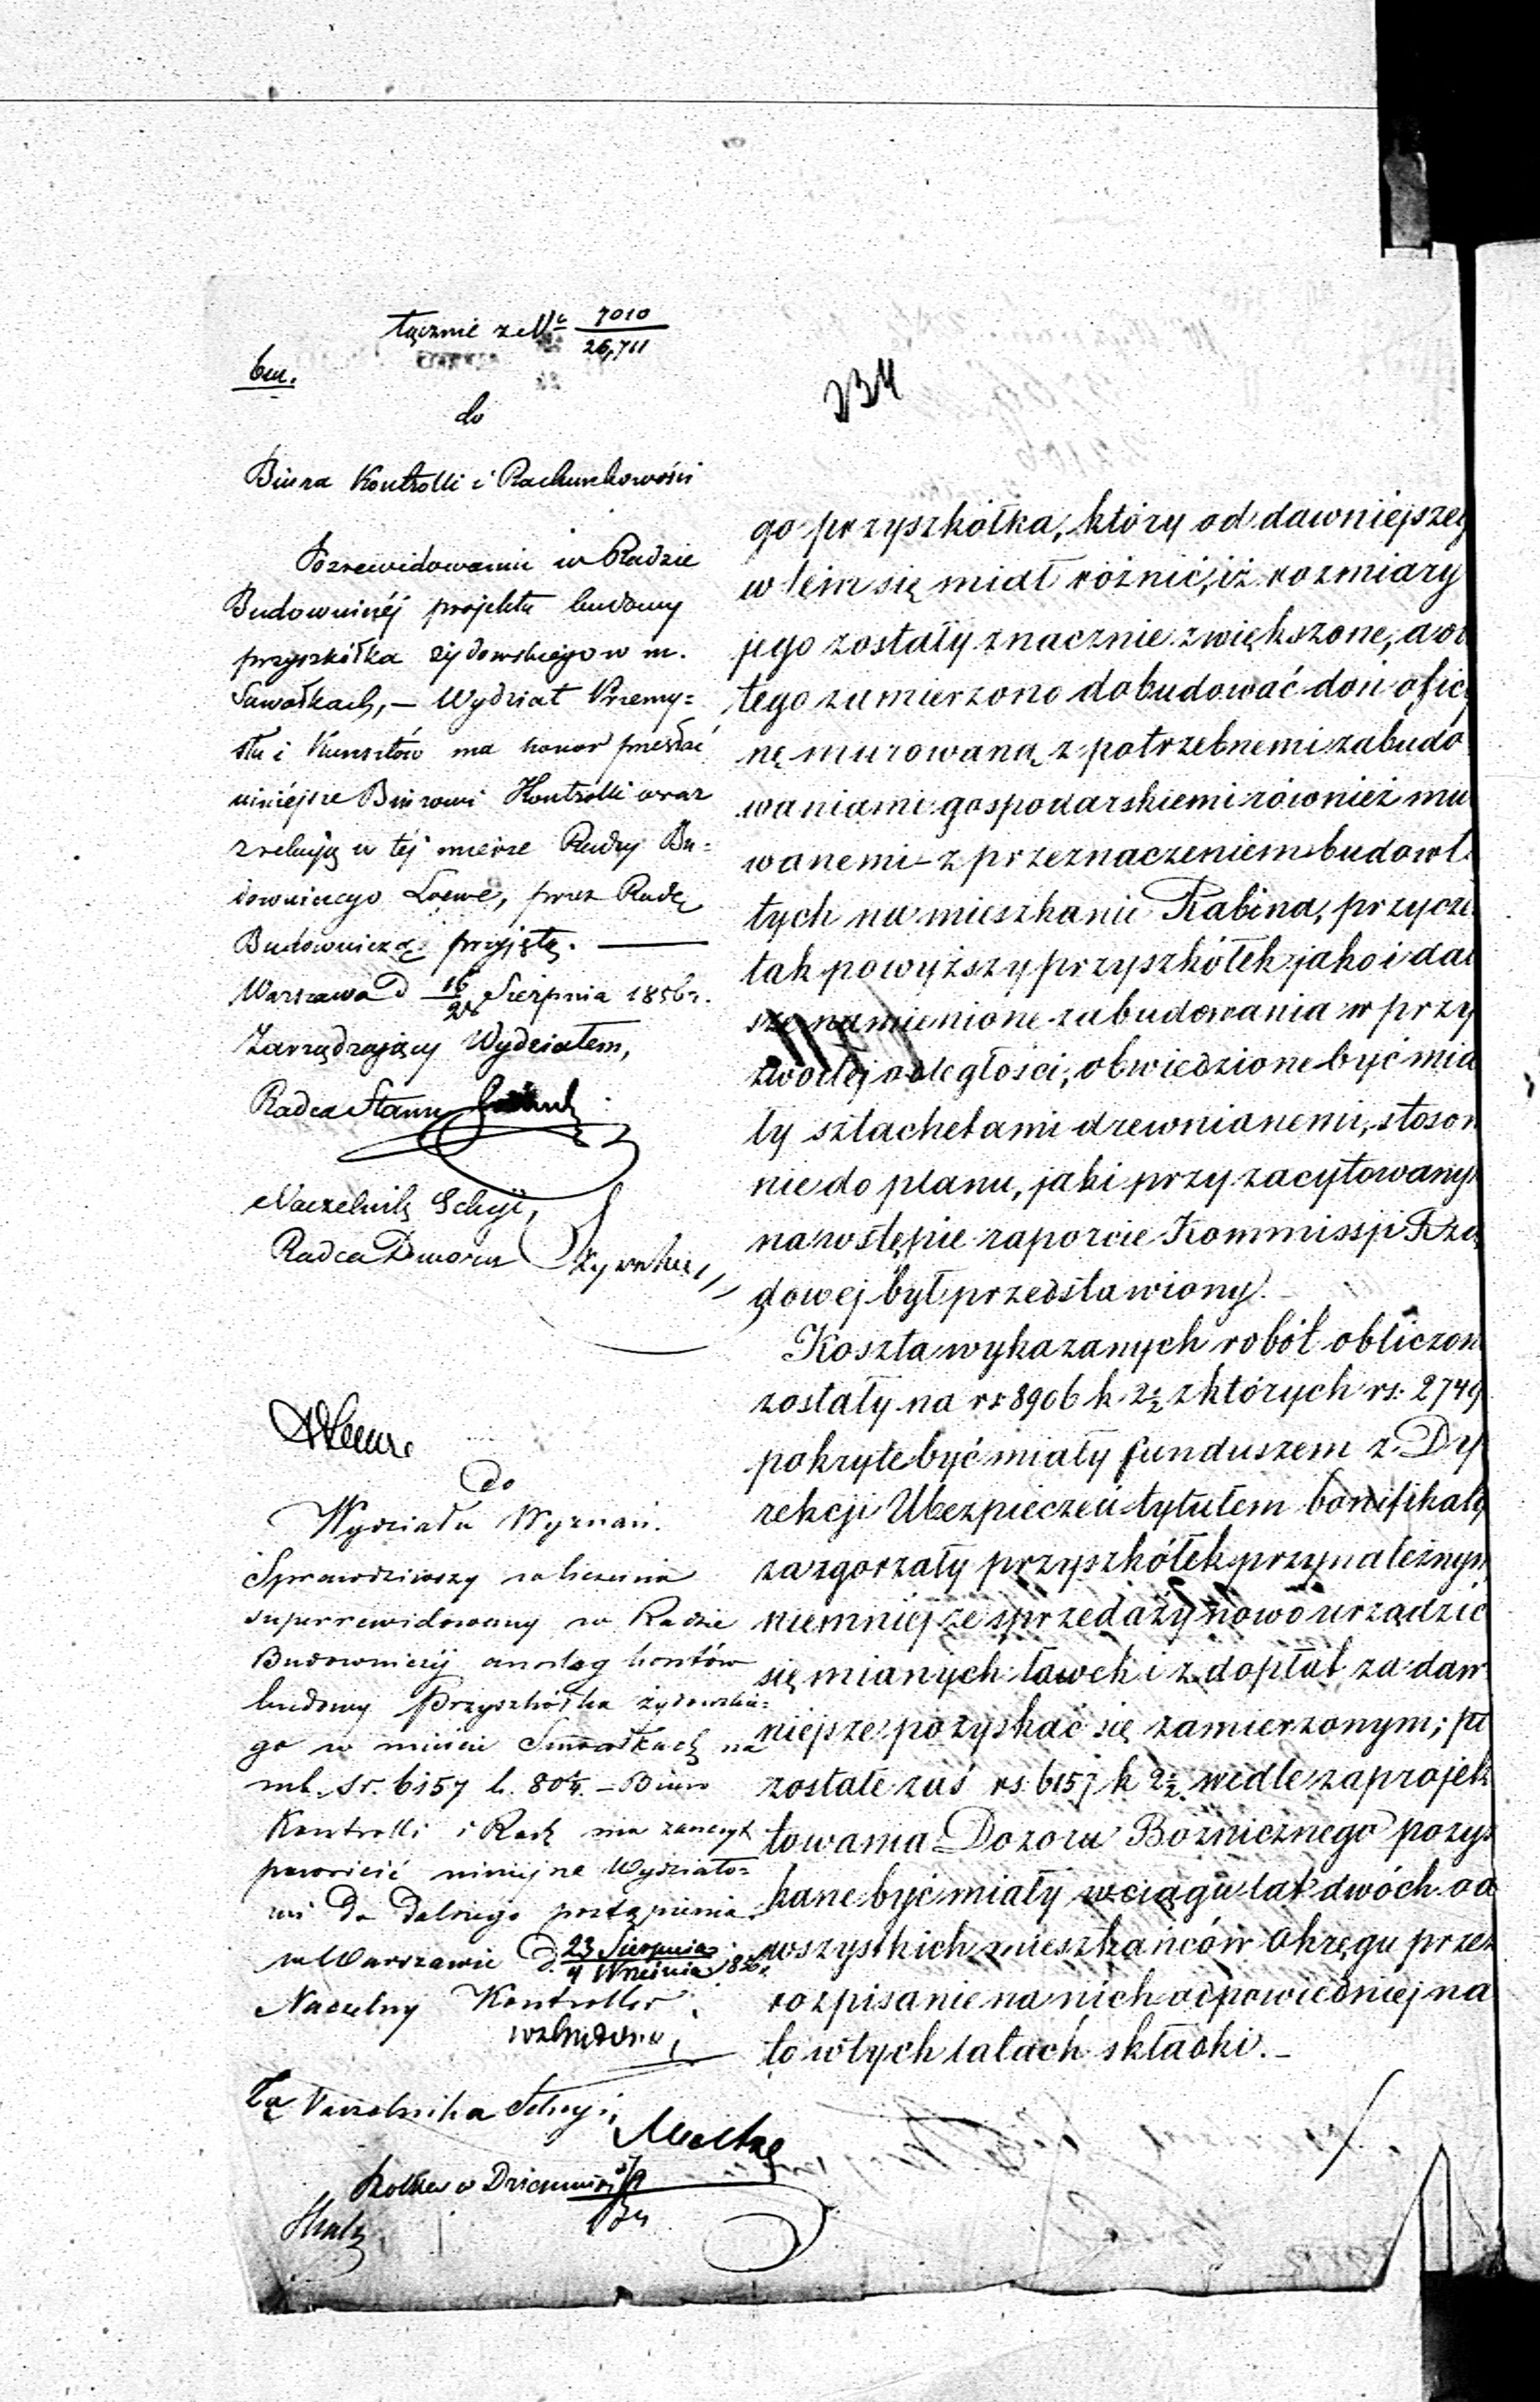 łącznie z Nr 7010
26,711
do
Biura Kontrolli i Rachunkowości
Po zrewidowaniu w Radzie
Budowniczéj projektu budowy
przyszkółka żydowskiego w m.
Suwałkach, — Wydział Przemy=
słu i Kunsztów ma honor przesłać
niniéjsze Biurowi Kontrolli wraz
z relacją w téj mierze Radzy Bu=
downiczego Loewe, przez Radę
Budowniczą przyjętą. —
Warszawa d 16/28 Sierpnia 1856 r.
Zarządzający Wydziałem,
Radca Stanu
Naczelnik Sekcji,
Radca Dworu
Do
Wydziału Wyznań.
Sprawdziwszy zaliczenia
superrewidowany w Radzie
Budowniczéj anszlag kosztów
budowy Przyszkółka żydowskie=
go w mieście Suwałkach na
rub. sr. 6157 k. 80½. — Biuro
Kontrolli i Rach ma zaszczyt
powrócić niniejsze Wydziało=
wi do dalszego postąpienia.
w Warszawie d. 23 Sierpnia
4 Września 1856 r.
Naczelny Kontroller
Za Naczelnika Sekcji,
234
go przyszkółka, który od dawniejszeg
w tem się miał różnić, iż rozmiary
jego zostały znacznie zwiększone, a o
tego zamierzono dobudować doń ofic
nę murowaną z potrzebnemi zabudo
waniami gospodarskiemi również mu
wanemi z przeznaczeniem budowl
tych na mieszkanie Rabina, przycze
tak powyższy przyszkółek jako i dal
sze namienione zabudowania w przy
zwoitej odległości, obwiedzione być mia
ły sztachetami drewnianemi, stosow
nie do planu, jaki przy zacytowanym
na wstępie raporcie Kommissji Rzą
dowej był przedstawiony.
Koszta wykazanych robót obliczon
zostały na rs 8906 k. 2½ z których rs. 2749
pokryte być miały funduszem z Dy
rekcji Ubezpieczeń tytułem bonifikaty
za zgorzały przyszkółek przynależnym
niemniej ze sprzedaży nowo urządzić
się mianych ławek i z dopłat za daw
niejsze pozyskać się zamierzonym; po
zostałe zaś rs. 6157 k 2½ wedle zaprojek
towania Dozoru Bóżnicznego pozys
kane być miały w ciągu lat dwóch od
wszystkich mieszkańców Okręgu przez
rozpisanie na nich odpowiedniej na
to w tych latach składki. —